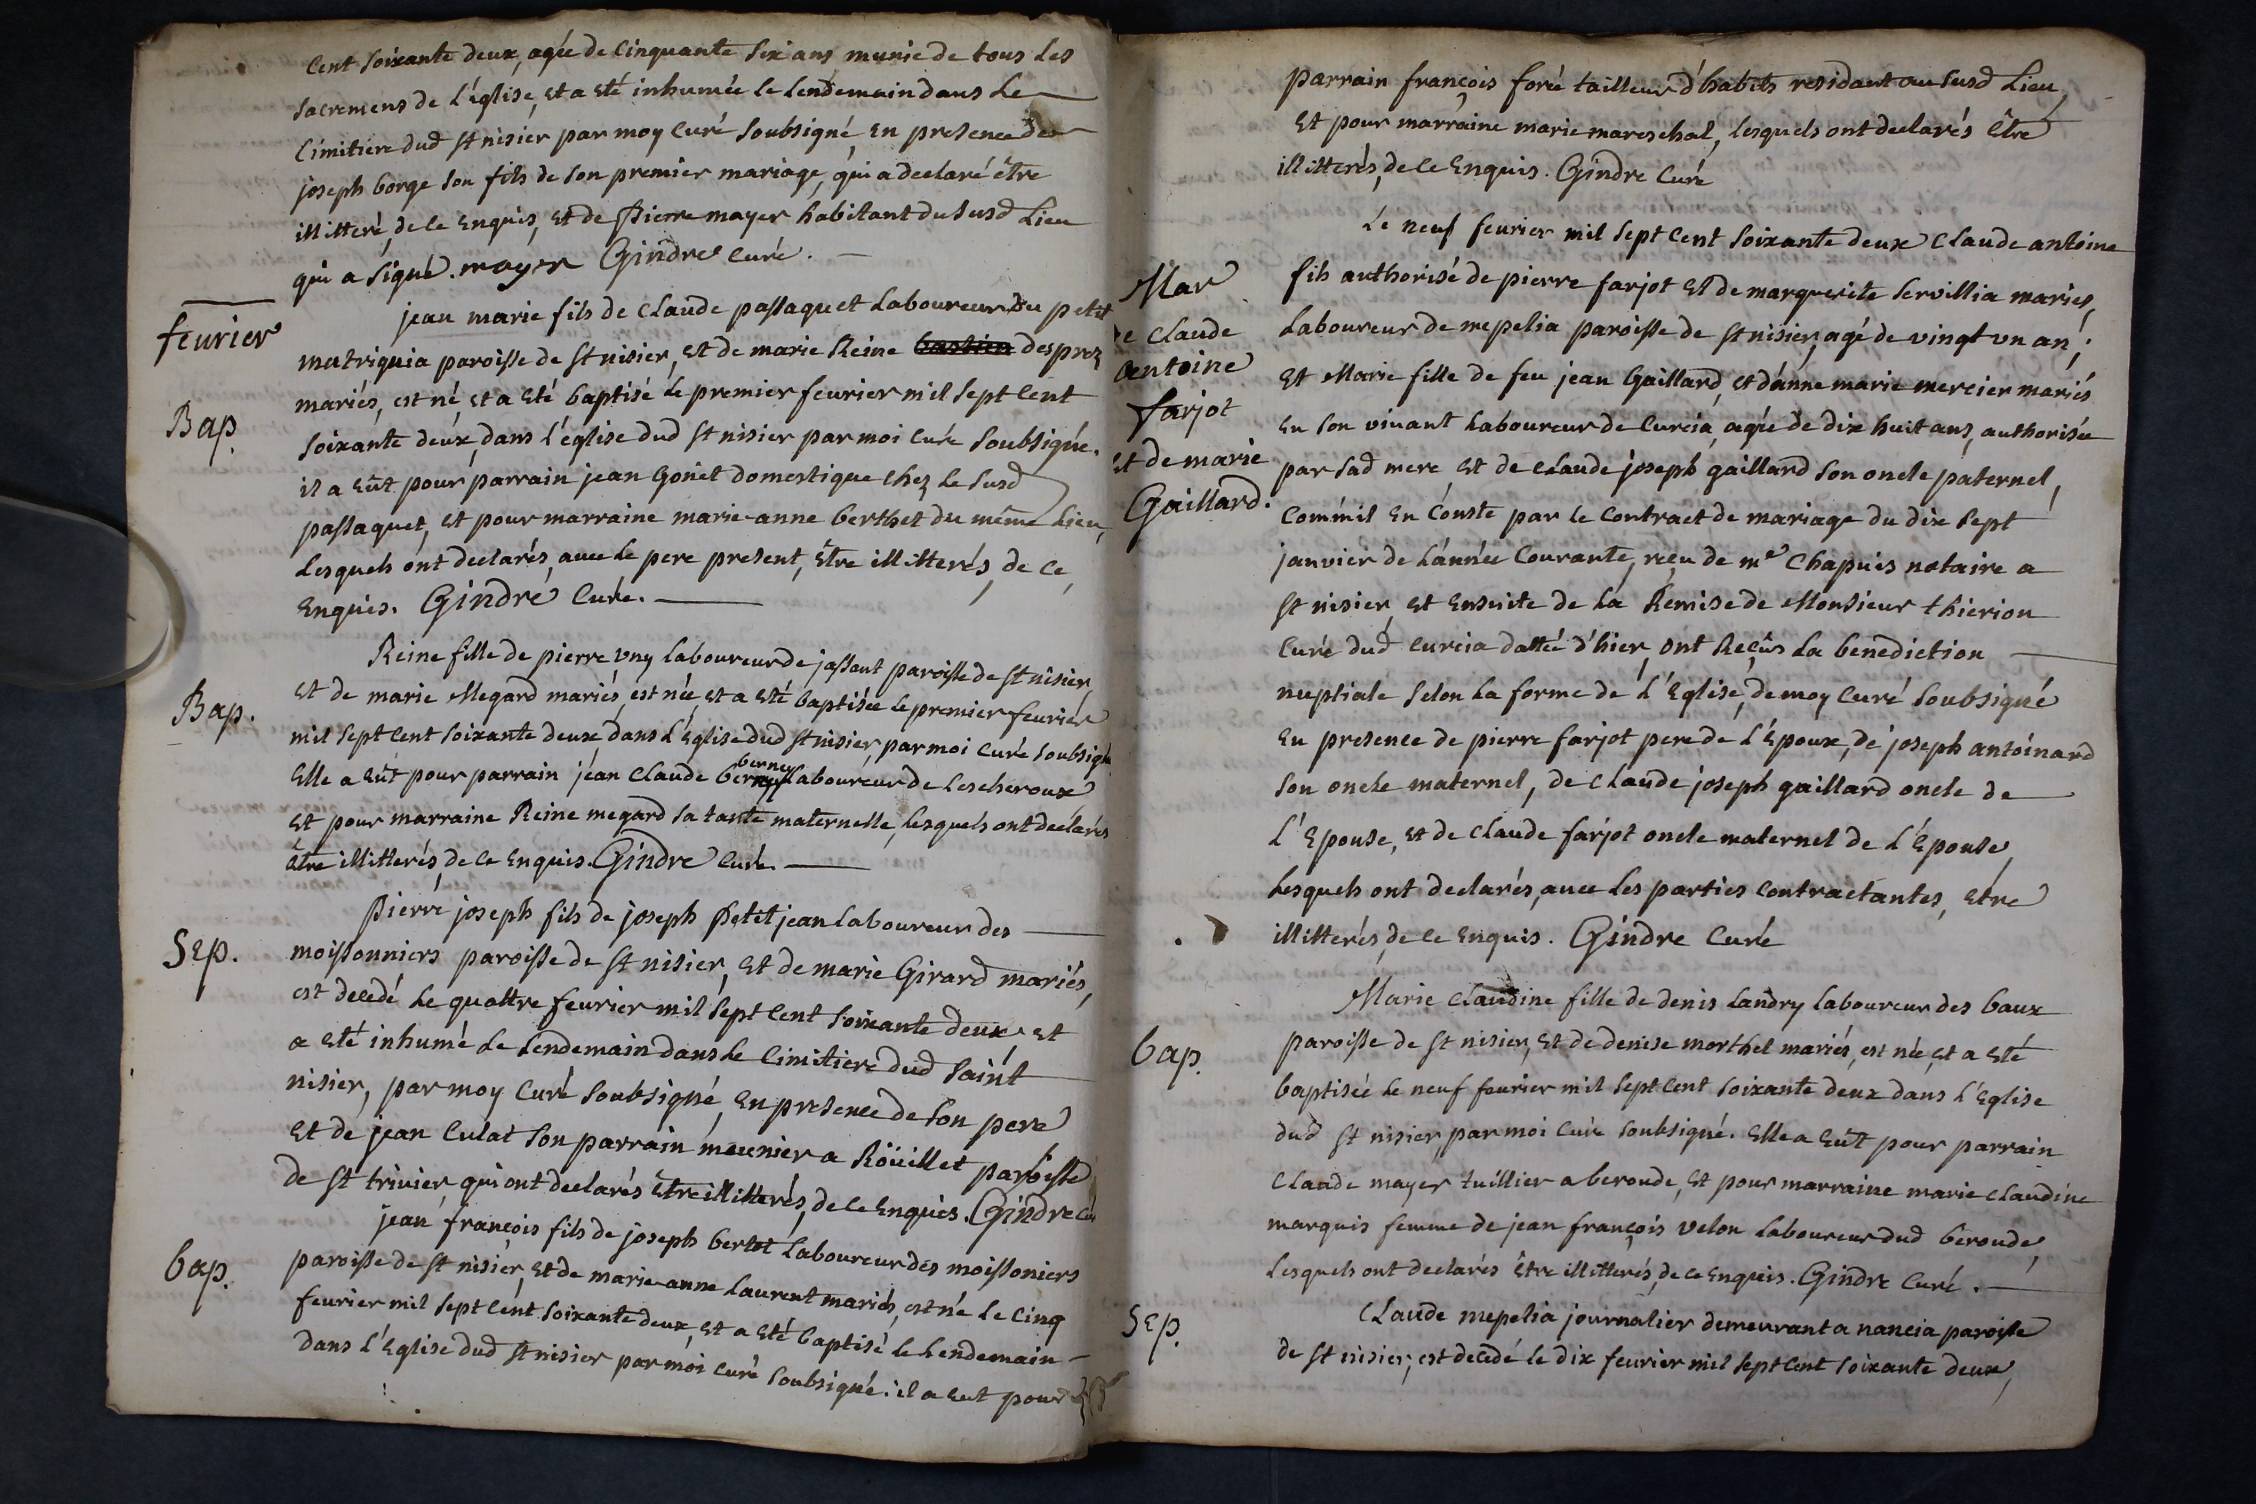 cent soixante deux, agée de cinquante six ans munie de tous les
sacremens de l'église, et a eté inhumée le lendemain dans le
cimitiere dud st nisier par moy curé soubsigné, en presence de
joseph borge son fils de son premier mariage, qui a declaré être
illitteré, de ce enquis, et de pierre mayer habitant du susd lieu
qui a signé. mayer Gindre curé.
fevrier
jean marie fils de claude passaquet laboureur du petit
mutriquia paroisse de st nisier, et de marie Reine desprez
Bap.
mariés, est né, et a eté baptisé le premier fevrier mil sept cent
soixante deux, dans l'église dud st nisier par moi curé soubsigné.
il a eût pour parrain jean Gonet domestique chez le susd
passaquet, et pour marraine marie anne berthet du même lieu,
lesquels ont declarés, avec le pere present, être illitterés, de ce
enquis. Gindre curé.
Bap.
Reine fille de pierre vny laboureur de jassant paroisse de st nisier,
et de marie Megard mariés, est née, et a eté baptisée le premier fevrier
mil sept cent soixante deux, dans l'église dud st nisier, par moi curé soubsigné
berney
Elle a eût pour parrain jean claude laboureur de lescheroux
et pour marraine Reine megard sa tante maternelle, lesquels ont declarés
être illitterés, de ce enquis. Gindre curé.
Sep.
pierre joseph fils de joseph petitjean laboureur des
moissonniers paroisse de st nisier, et de marie Girard mariés,
est decedé le quattre fevrier mil sept cent soixante deux, et
a eté inhumé le lendemain dans le cimitiere dud saint
nisier, par moy curé soubsigné, en presence de son pere
et de jean culat son parrain meunier a Roüillet paroisse
de st trivier, qui ont declarés être illitterés, de ce enquis. Gindre cu
bap.
jean françois fils de joseph bertet laboureur des moissoniers
paroisse de st nisier, et de marie anne laurent mariés, est né le cinq
fevrier mil sept cent soixante deux, et a eté baptisé le lendemain
dans l'Eglise dud st nisier par moi curé soubsigné. il a eut pour
parrain françois foré tailleur d'habits residant au susd lieu,
et pour marraine marie mareschal, lesquels ont declarés être
illitterés, de ce enquis. Gindre curé
Mar
e claude
antoine
farjot
et de marie
Gaillard.
Le neuf fevrier mil sept cent soixante deux claude antoine
fils authorisé de pierre farjot et de marguerite servillia mariés,
laboureur de mepelia paroisse de st nisier, agé de vingt vn an,
et Marie fille de feu jean Gaillard, et d'anne marie mercier mariés
en son vivant laboureur de curcia, agée de dix huit ans, authorisée
par sad mere, et de claude joseph gaillard son oncle paternel,
comm'il en conste par le contract de mariage du dix sept
janvier de l'année courante, reçu de me Chapuis notaire a
st nisier, et ensuite de la Remise de Monsieur thierion
curé dud curcia dattée d'hier, ont Reçûs la benediction
nuptiale selon la forme de l'Eglise, de moy curé soubsigné
en presence de pierre farjot pere de l'Epoux, de joseph antoinard
son oncle maternel, de claude joseph gaillard oncle de
l'Epouse, et de claude farjot oncle maternel de l'Epouse,
lesquels ont declarés, avec les parties contractantes, etre
illitterés, de ce enquis. Gindre curé
bap.
Marie claudine fille de denis landry laboureur des baux
paroisse de st nisier, et de denise morthel mariés, est née, et a eté
baptisée le neuf fevrier mil sept cent soixante deux dans l'Eglise
dud st nisier, par moi curé soubsigné. elle a eût pour parrain
claude mayer tuillier a beroude, et pour marraine marie claudine
marquis femme de jean françois velon laboureur dud beroude,
lesquels ont declarés être illitterés, de ce enquis. Gindre curé.
Sep.
Claude mepelia journalier demeurant a nancia paroisse
de st nisier, est decedé le dix fevrier mil sept cent soixante deux,